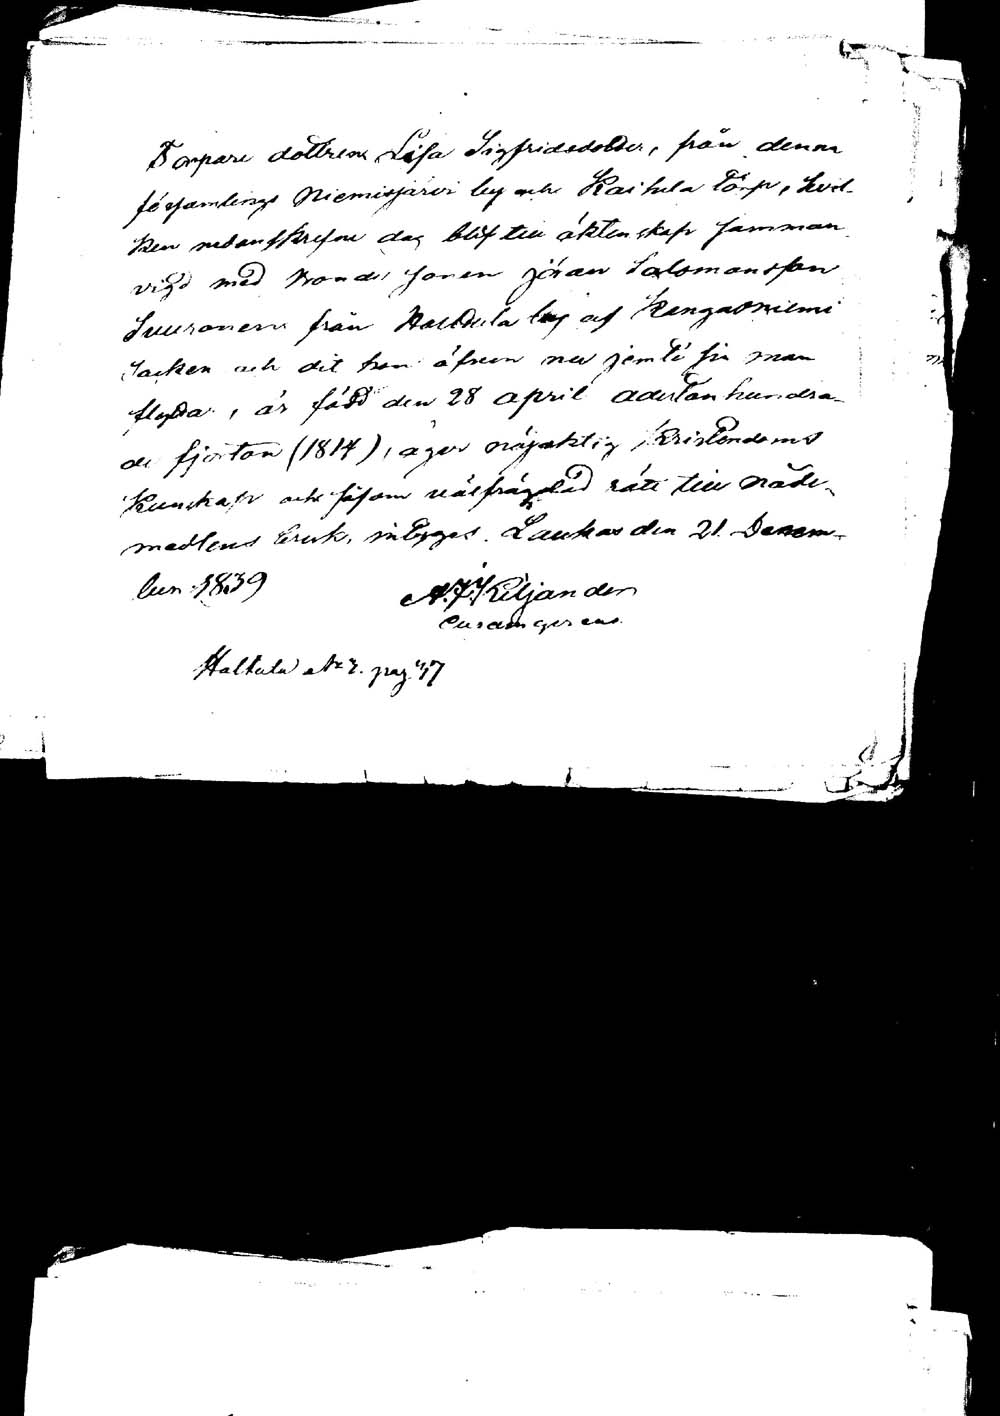 Torpare dottren Lisa Sigfridsdotter, från denna
församlings Niemisjärvi by och Kaihula Torp, hvil-
ken nedanskrefne dag blif till äktenskap samman
vigd med Bonde Sonen Jöran Salomonsson
Suuronen från Haltula by af Kangasniemi
Socken och dit hon äfven nu jemte sin man
flytta, är född den 28 april adertonhundra-
de fjorton (1814), äger nöjaktig Kristendoms
Kunskap och såsom välfrägdad rätt till nåde-
medlens bruk, intygas. Laukas den 21 Decem-
ber 1839
A. F. Kiljander
Curam gerens.
Haltula No 2. pag 47